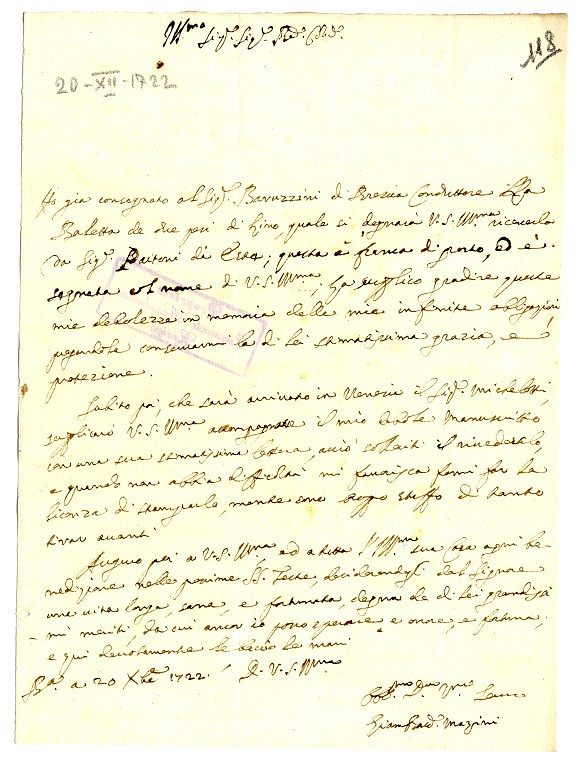 Ill.mo Sig.r Sig.r Pad.n Col.mo
118
20-XII-1722
Ho già consegnato al Sig.r Baruzzini di Brescia Conduttore la
Baletta de due pesi di Lino, quale si degnarà V.S. Ill.ma riceverla
da Sig.r Pattoni di Este; questa è franca di porto, ed è
segnata col nome di V.S. Ill.ma, la supplico gradire queste
mie debolezze in memoria delle mie infinite obligazioni
pregandola conservarmi la di lei stimatissima grazia, e
protezione.
Subito poi, che sarà arrivato in Venezia il Sig.r Michelotti,
supplicarò V.S. Ill.ma accompagnare il mio debole Manuscritto
con una sua stimatissima lettera, acciò solleciti il rivederlo,
e quando non abbia difficoltà mi favorisca farmi far la
licenza di stamparlo, mentre sono troppo stuffo di tanto
tirar avanti.
Auguro poi a V.S. Ill.ma ed a tutta l'Ill.ma sua Casa ogni be-
nedizione nelle prossime SS. Feste, desiderandogli dal Signore
una vita longa, sana, e fortunata, degna de di lei grandissi-
mi meriti, da cui ancor io posso sperare e onore, e fortuna,
e qui devotamente le bacio le mani
B.a a 20 Xbre 1722. D. V.S. Ill.ma
Giam Batt.a Mazini